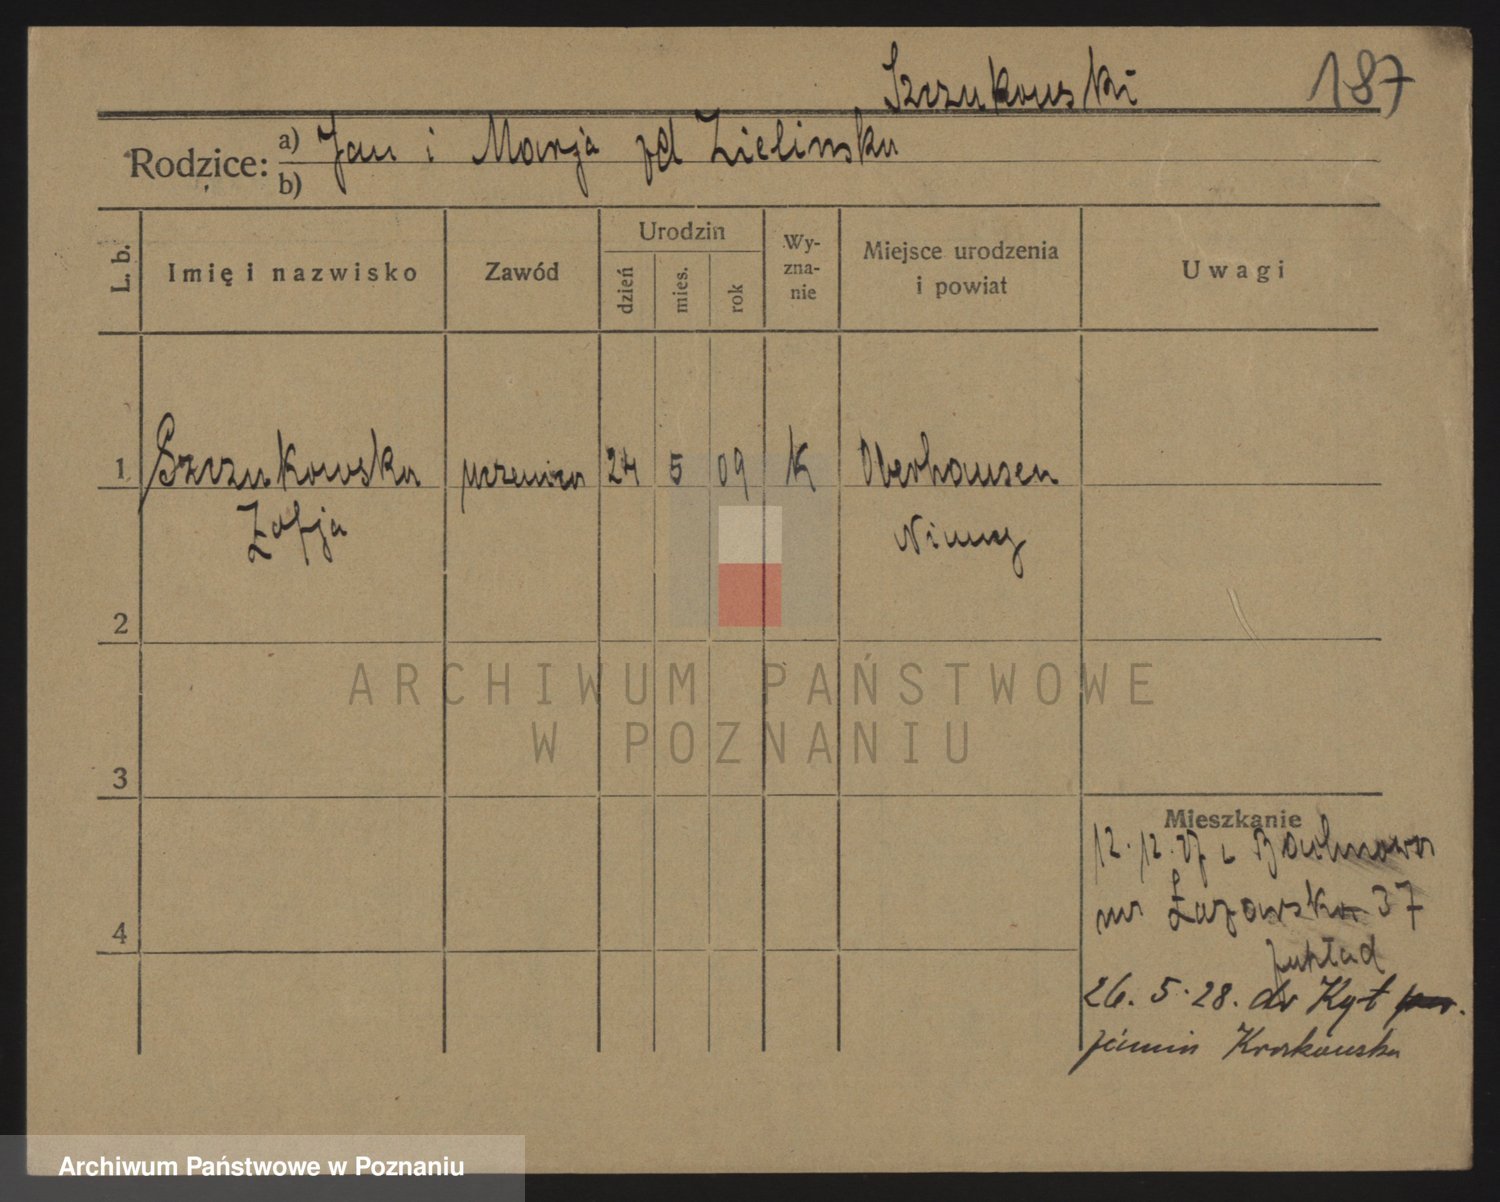 Szczukowski 187
Rodzice: a) Jan i Marja zd Zielinska
b)
L. b. Imię i nazwisko Zawód Urodzin dzień mies. rok Wy-zna-nie Miejsce urodzenia i powiat Uwagi
1 Szczukowska uczenica 24 5 09 K Oberhausen
Zofja Niemcy
2
ARCHIWUM PAŃSTWOWE
W POZNANIU
3
Mieszkanie
12. 12. 27 z
4
Łazarska 37
zakład
26. 5. 28. do
Kroskowska
Archiwum Państwowe w Poznaniu